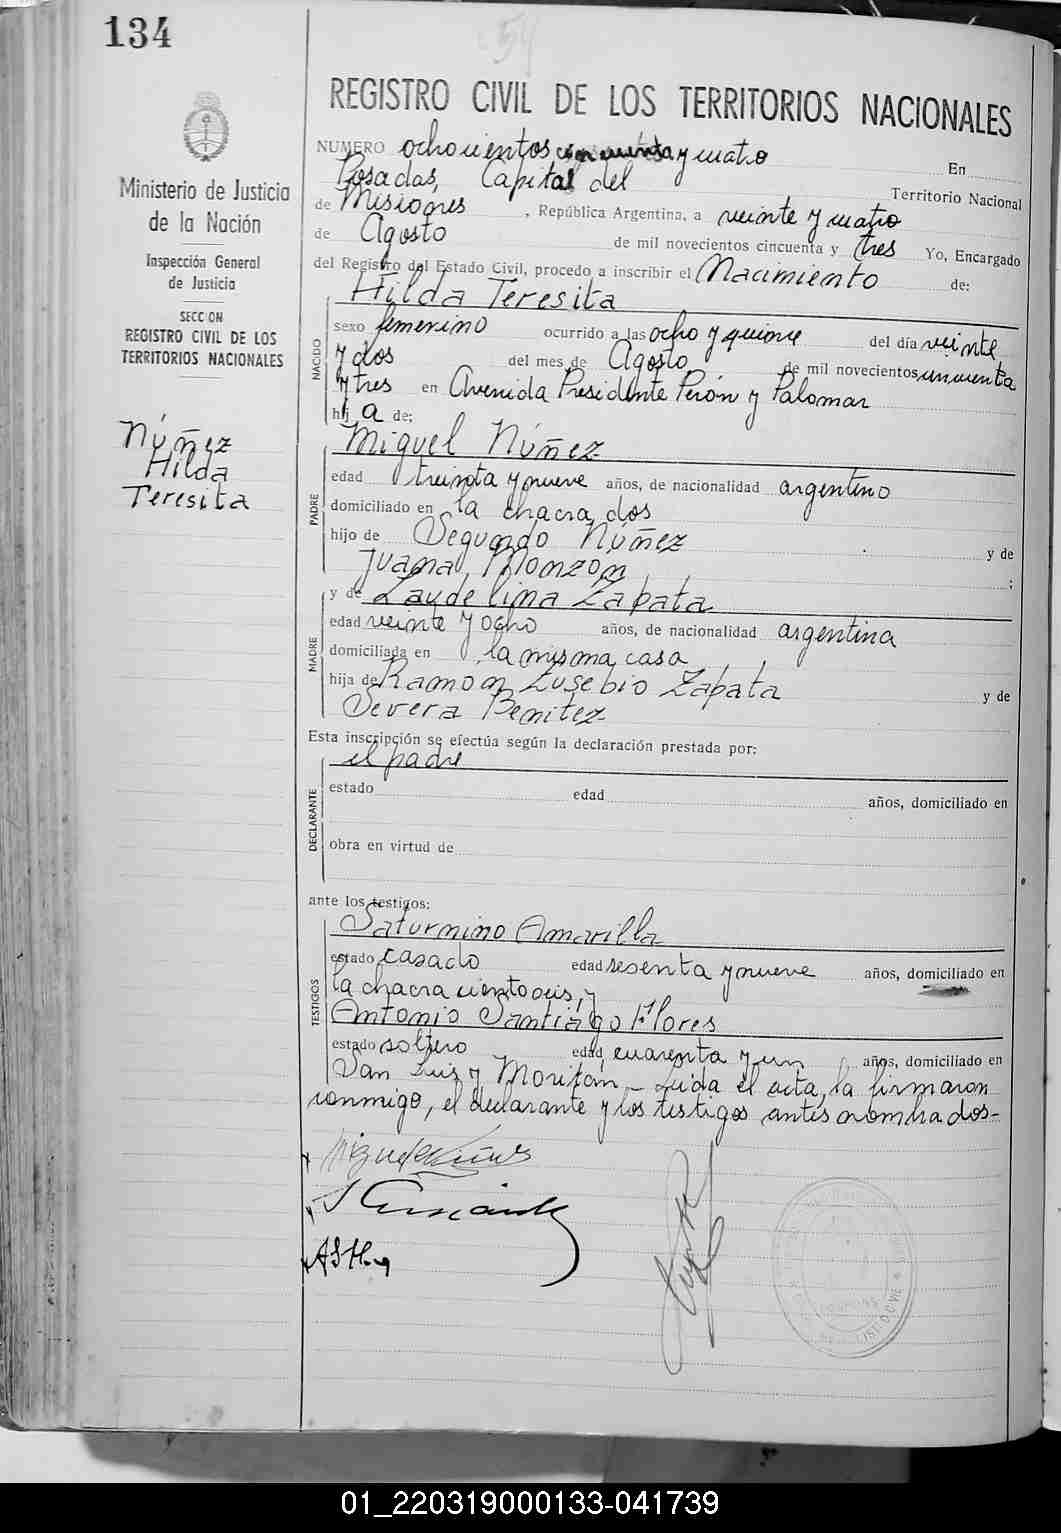 134
54
REGISTRO CIVIL DE LOS TERRITORIOS NACIONALES
NUMERO ochocientos cincuenta y cuatro En
Posadas, Capital del Territorio Nacional
de Misiones, República Argentina, a veinte y cuatro
de Agosto de mil novecientos cincuenta y tres Yo, Encargado
del Registro del Estado Civil, procedo a inscribir el Nacimiento de:
Ministerio de Justicia
de la Nación
Inspección General
de Justicia
SECCION
REGISTRO CIVIL DE LOS
TERRITORIOS NACIONALES
Núñez
Hilda
Teresita
NACIDO
Hilda Teresita
sexo femenino ocurrido a las ocho y quince del día veinte
y dos del mes de Agosto de mil novecientos cincuenta
y tres en Avenida Presidente Perón y Palomar
hij a de:
PADRE
Miguel Núñez
edad treinta y nueve años, de nacionalidad argentino
domiciliado en la chacra dos
hijo de Segundo Núñez y de
Juana Monzon ;
MADRE
y de Laudelina Zapata
edad veinte y ocho años, de nacionalidad argentina
domiciliada en la misma casa
hija de Ramon Eusebio Zapata y de
Severa Benitez
Esta inscripción se efectúa según la declaración prestada por:
DECLARANTE
el padre
estado edad años, domiciliado en
obra en virtud de
ante los testigos:
TESTIGOS
Saturnino Amarilla
estado casado edad sesenta y nueve años, domiciliado en
la chacra ciento seis, y
Antonio Santiago Flores
estado soltero edad cuarenta y un años, domiciliado en
San Luis y Moritán - Leida el acta, la firmaron
conmigo, el declarante y los testigos antes nombrados-
Miguel Núñez
01_220319000133-041739